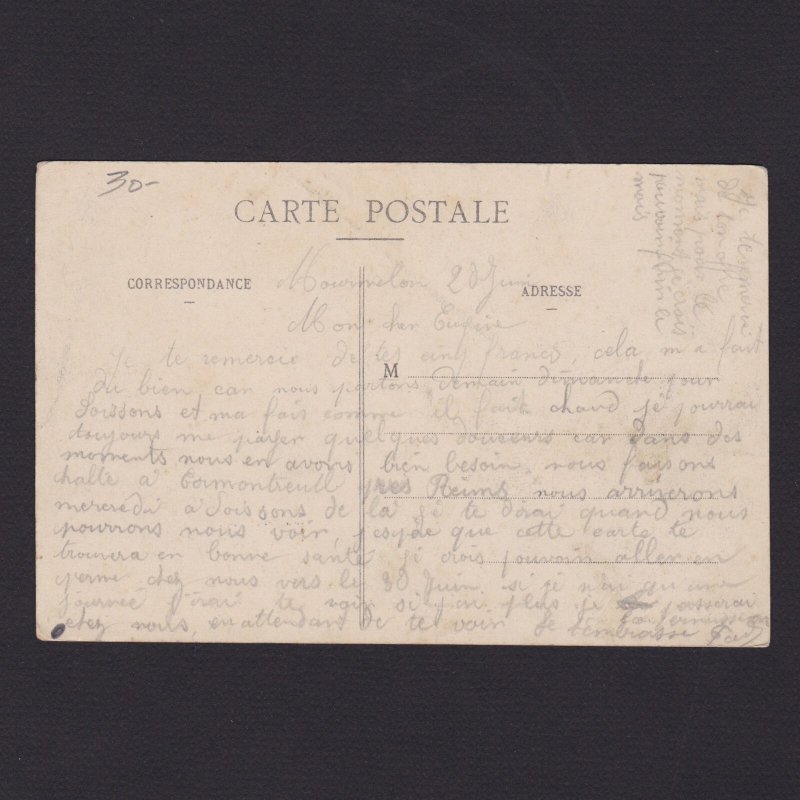 30-
CARTE POSTALE
CORRESPONDANCE
ADRESSE
M
Mourmelon 20 Juin
Mon cher Eugène
Je te remercie de tes cinq francs, cela m'a fait
du bien car nous partons demain dimanche pour
Soissons et ma fois comme il fait chaud je pourrai
toujours me payer quelques douceurs car dans des
moments nous en avons bien besoin, nous faisons
halte à Cormontreuil pres Reims nous arriverons
mercredi a Soissons de la je te dirai quand nous
pourrons nous voir, j'espère que cette carte te
trouvera en bonne santé je crois pouvoir aller en
perme chez nous vers le 30 Juin si je n'ai qu'une
journée j'irai te voir si j'ai plus je passerai
chez nous, en attendant de te voir je t'embrasse